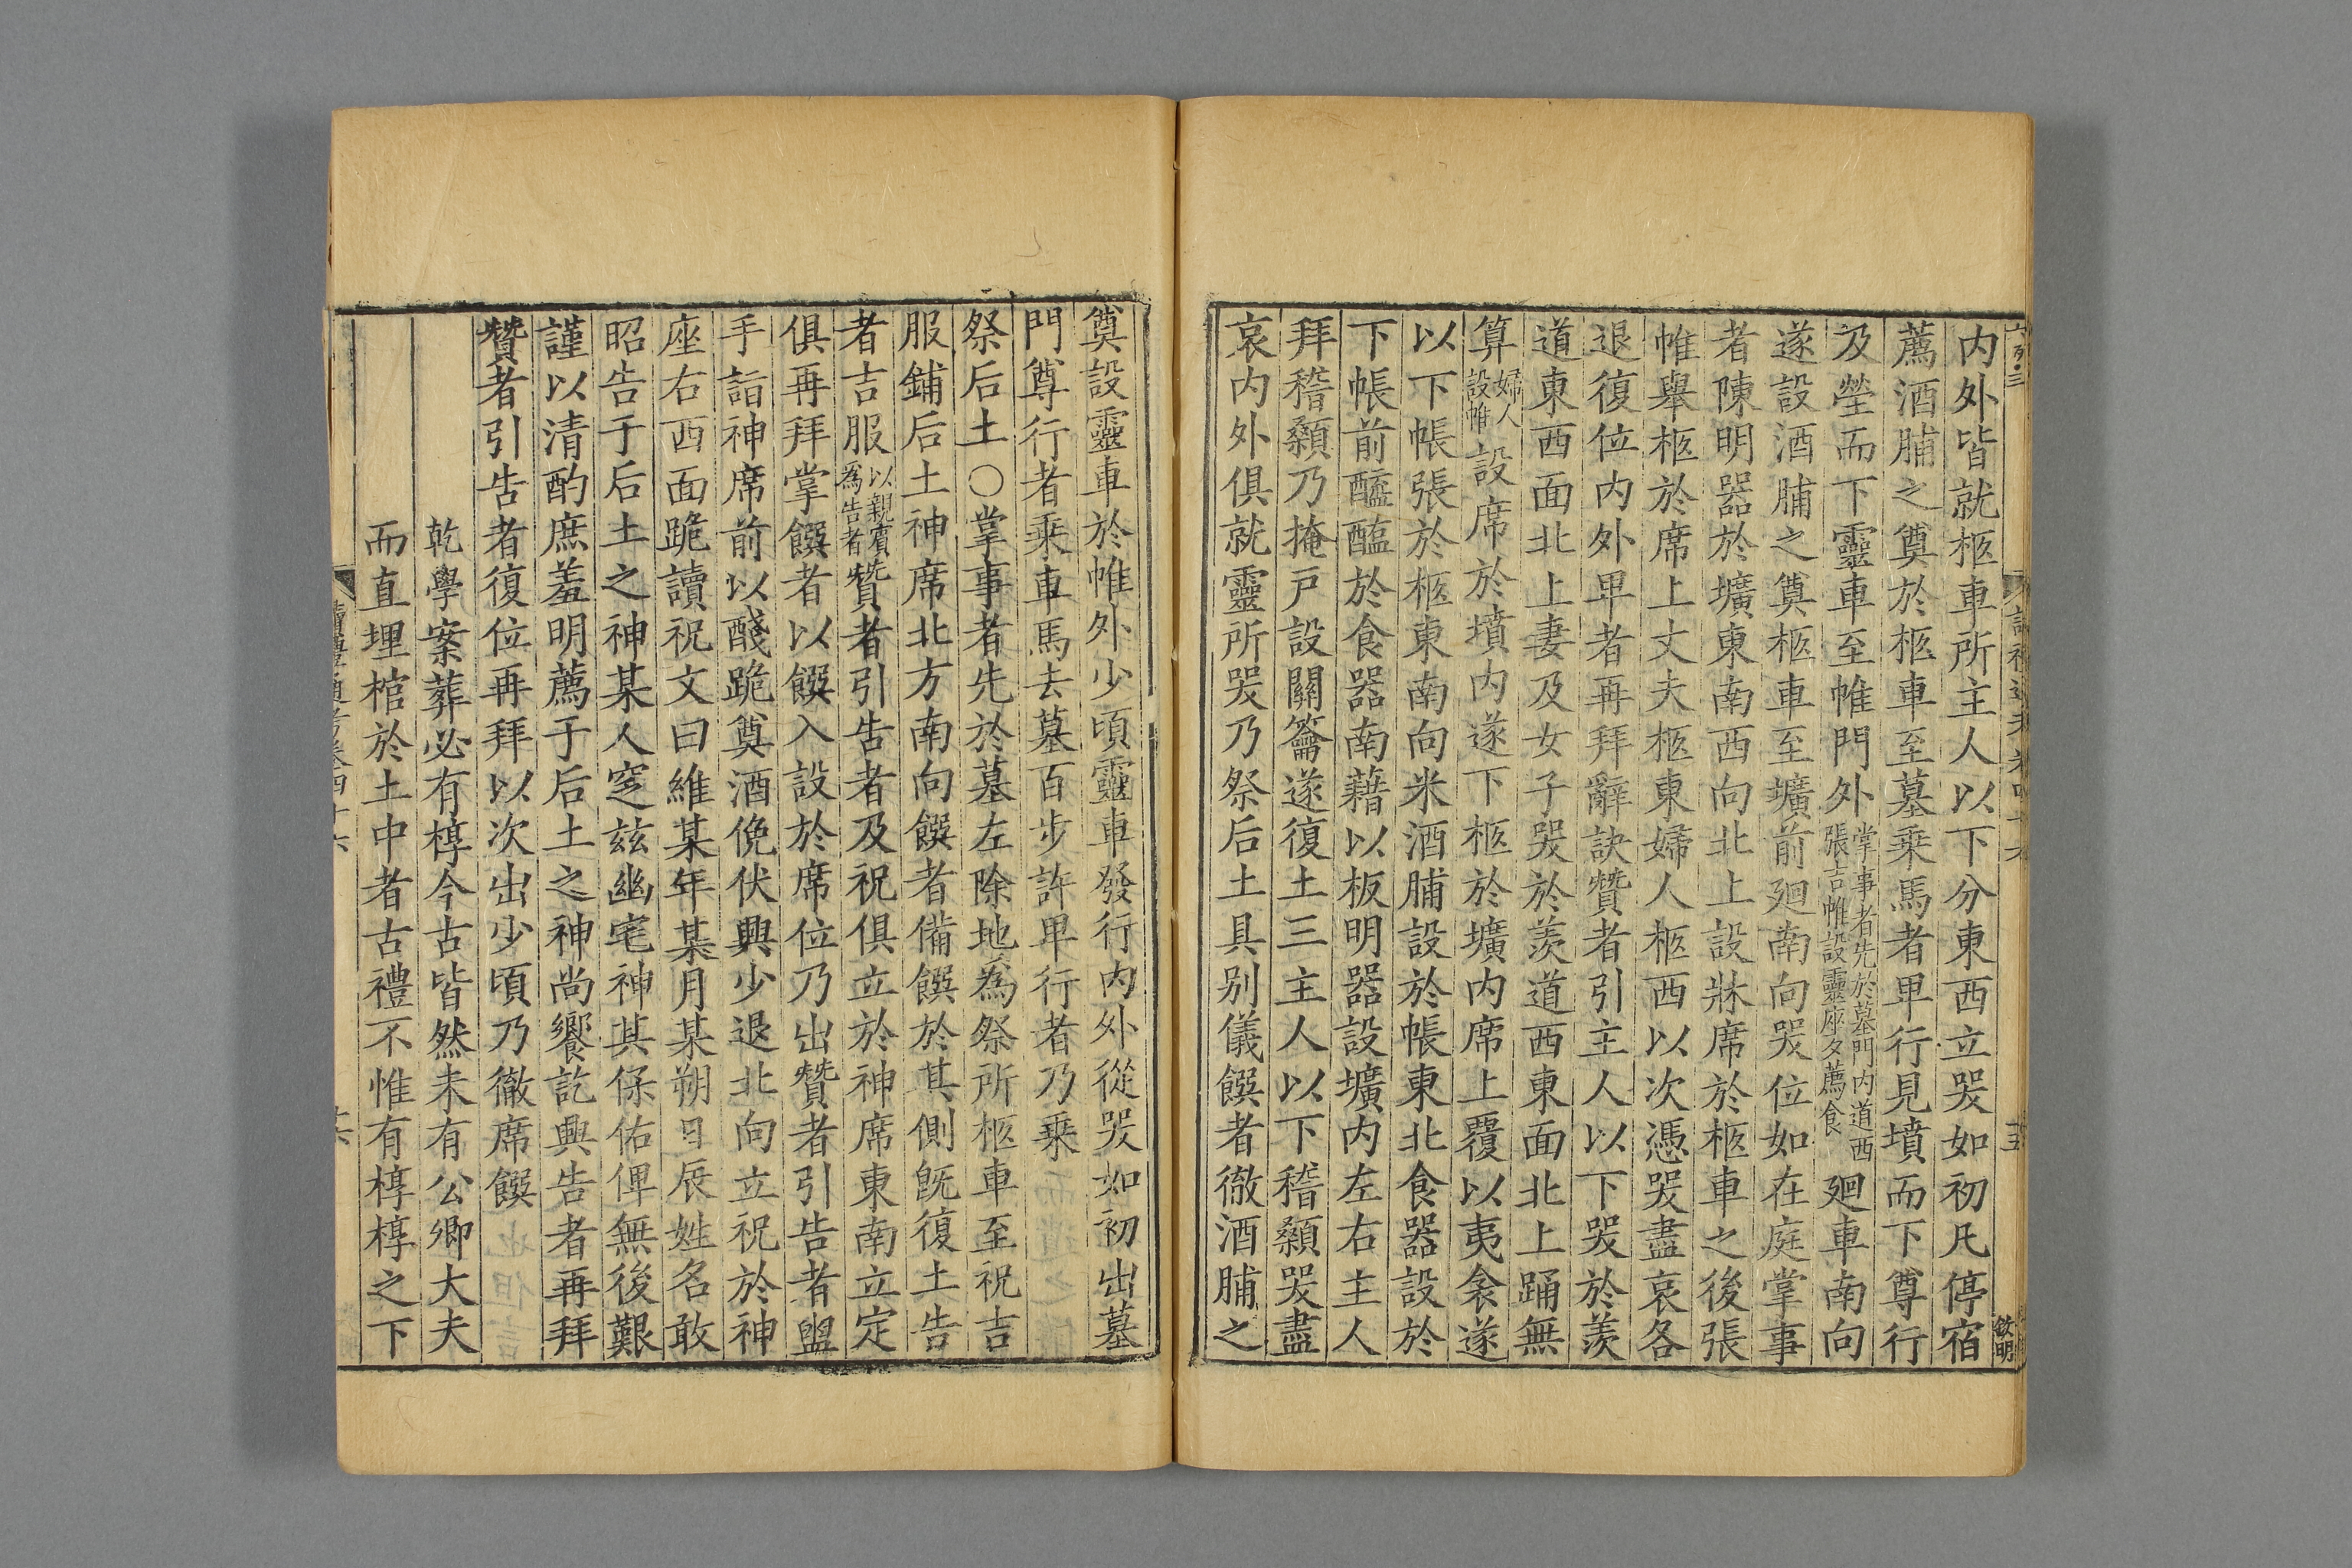 内外皆就柩車所主人以下分東西立哭如初凡停宿
薦酒脯之奠於柩車至墓乘馬者卑行見墳而下尊行
及塋而下靈車至帷門外掌事者先於墓門内道西張吉帷設靈座夕薦食廻車南向
遂設酒脯之奠柩車至壙前廻南向哭位如在庭掌事
者陳明器於壙東南西向北上設牀席於柩車之後張
帷舉柩於席上丈夫柩東婦人柩西以次憑哭盡哀各
退復位内外卑者再拜辭訣贊者引主人以下哭於羨
道東西面北上妻及女子哭於羨道西東面北上踊無
算婦人設帷設席於墳内遂下柩於壙内席上覆以夷衾遂
以下帳張於柩東南向米酒脯設於帳東北食器設於
下帳前醯醢於食器南藉以板明器設壙内左右主人
拜稽顙乃掩戶設關籥遂復土三主人以下稽顙哭盡
哀内外俱就靈所哭乃祭后土具别儀饌者徹酒脯之
奠設靈車於帷外少頃靈車發行内外從哭如初出墓
門尊行者乘車馬去墓百步許卑行者乃乘
祭后土○掌事者先於墓左除地為祭所柩車至祝吉
服鋪后土神席北方南向饌者備饌於其側旣復土告
者吉服以親賓為告者贊者引告者及祝俱立於神席東南立定
俱再拜掌饌者以饌入設於席位乃出贊者引告者盥
手詣神席前以醆跪奠酒俛伏興少退北向立祝於神
座右西面跪讀祝文曰維某年某月某朔日辰姓名敢
昭告于后土之神某人窆兹幽宅神其保佑俾無後艱
謹以清酌庶羞明薦于后土之神尚饗訖興告者再拜
贊者引告者復位再拜以次出少頃乃徹席饌
乾學案葬必有椁今古皆然未有公卿大夫
而直埋棺於土中者古禮不惟有椁椁之下
讀禮通考卷四十六